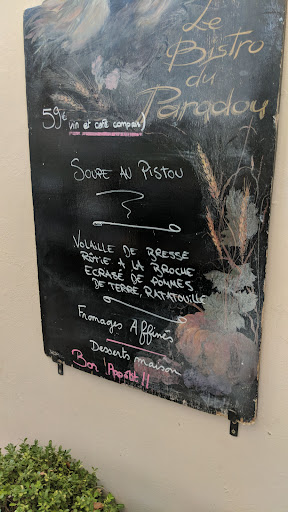 Le
Bistro
du
Paradou
59€
vin et café compris)
SOUPE AU PISTOU
VOLAILLE DE BRESSE
RÔTIE A LA BROCHE
ECRASÉ DE POMMES
DE TERRE, RATATOUILLE
Fromages Affinés
Desserts maison
Bon Appétit!!